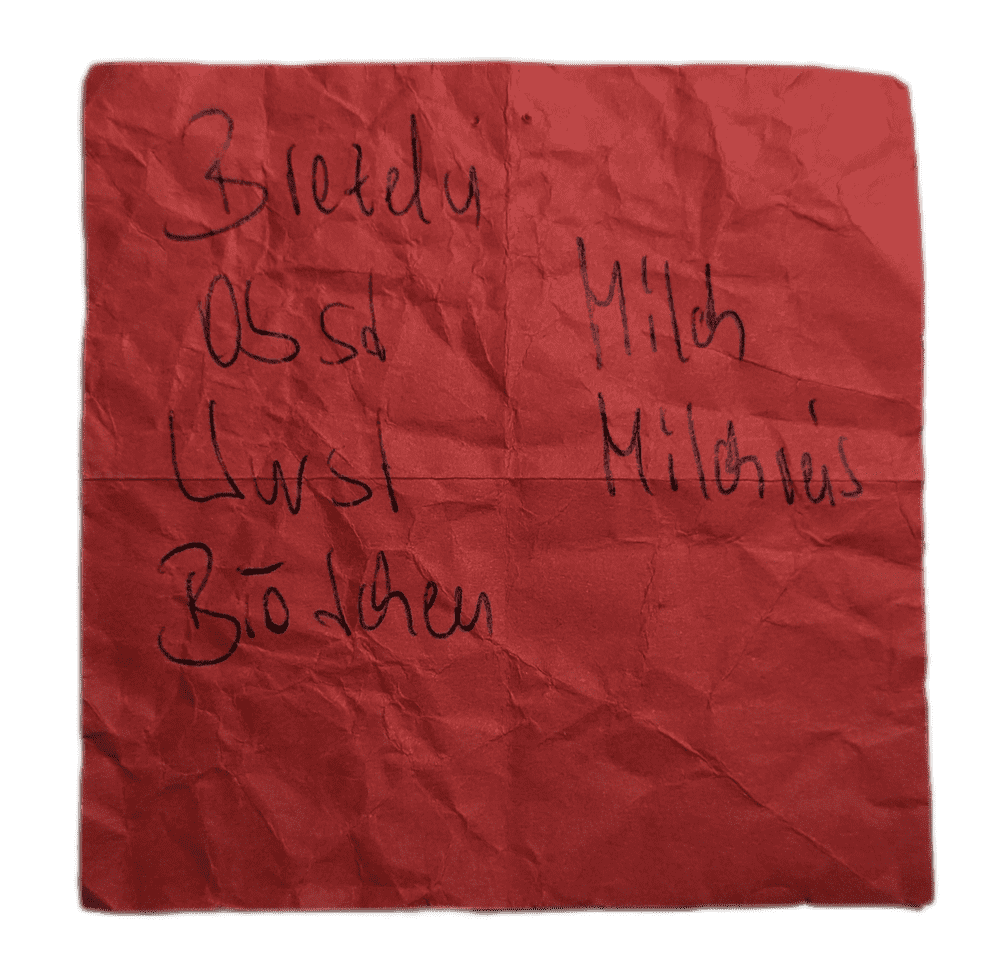 Brezeln
Obst
Wurst
Brötchen
Milch
Milchreis